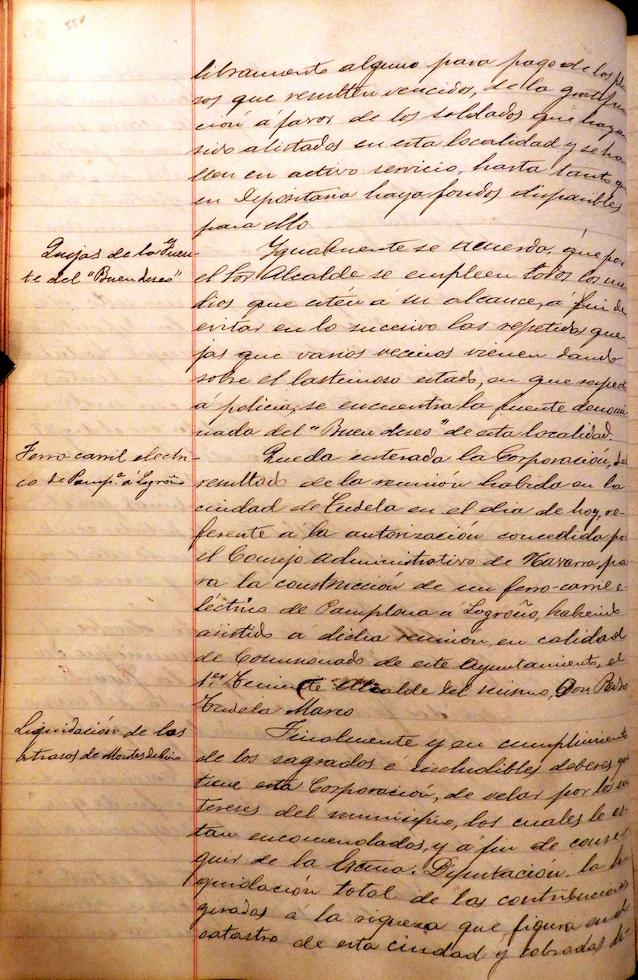 libramiento alguno para pago de los pla
zos que resulten vencidos, de la gratifica
ción á favor de los soldados que hayan
sido alistados en esta localidad y se ha
llen en activo servicio, hasta tanto que
en Depositaria haya fondos disponibles
para ello
Quejas de la Fuen-
te del "Buen deseo"
Ygualmente se acuerda, que por
el Sor Alcalde se empleen todos los me
dios que estén á su alcance, a fin de
evitar en lo sucesivo las repetidas que
jas que varios vecinos vienen dando
sobre el lastimoso estado, en que respecto
á policia, se encuentra la fuente denomi
nada del "Buen deseo" de esta localidad.
Ferro carril electri-
co de Pampª á Logroño
Queda enterada la Corporación, del
resultado de la reunión habida en la
ciudad de Tudela en el dia de hoy, re-
ferente a la autorización concedida por
el Consejo administrativo de Navarra, pa
ra la construcción de un ferro-carril e-
léctrico de Pamplona a Logroño, habiendo
asistido á dicha reunión, en calidad
de Comisionado de este Ayuntamiento, el
1er Teniente Alcalde del mismo, Don Pedro
Tudela Marco
Liquidación de los
atrasos de Montes de Cierzo
Finalmente y en cumplimiento
de los sagrados é ineludibles deberes que
tiene esta Corporación, de velar por los in
tereses del municipio, los cuales le es
tan encomendados, y á fin de conse
guir de la Excma. Diputación, la li
quidación total de las contribuciones
giradas á la riqueza que figura en el
catastro de esta ciudad y cobradas di-